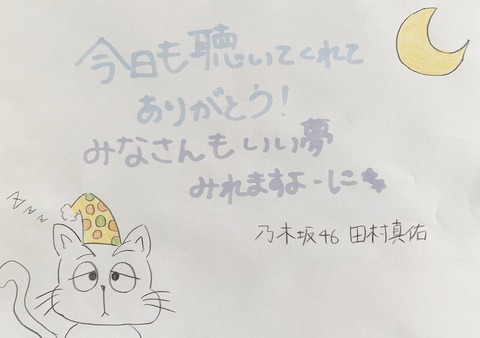 今日も聴いてくれて
ありがとう!
みなさんもいい夢
みれますよーに
乃木坂46 田村真佑